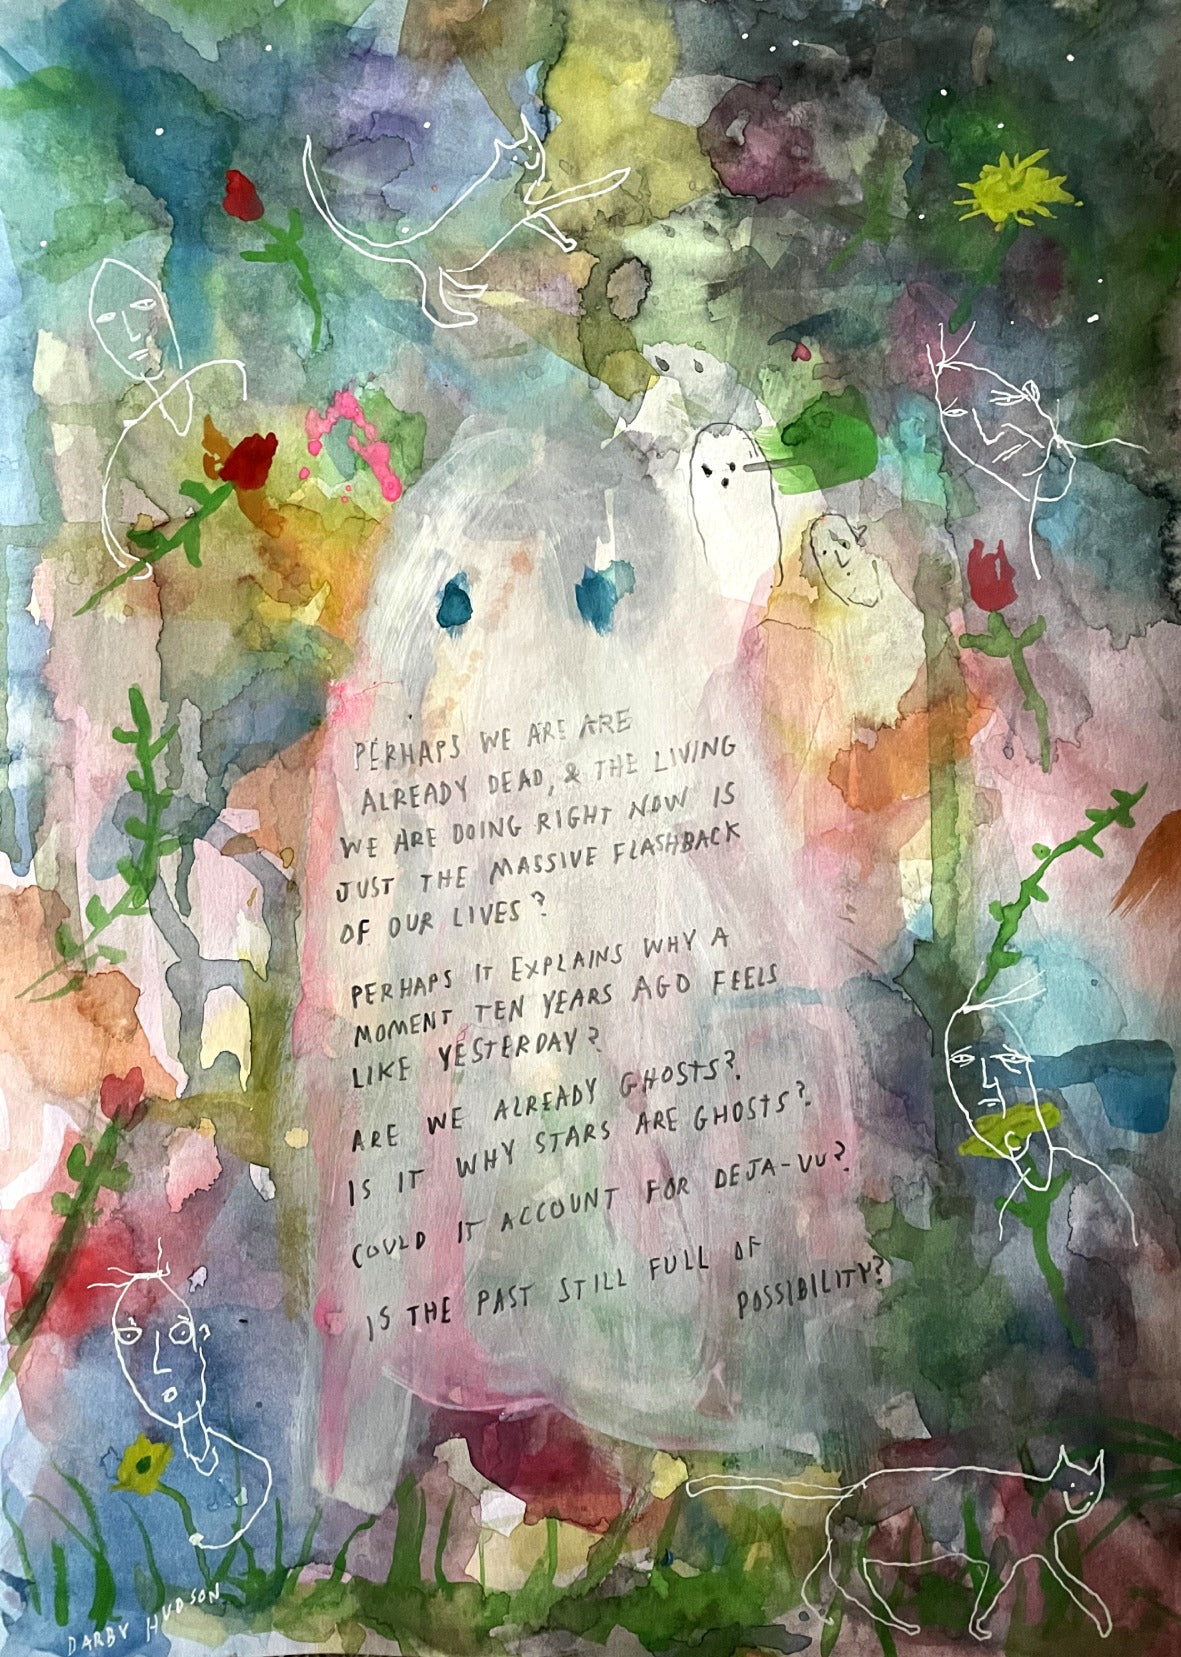 PERHAPS WE ARE ARE
ALREADY DEAD, & THE LIVING
WE ARE DOING RIGHT NOW IS
JUST THE MASSIVE FLASHBACK
OF OUR LIVES?
PERHAPS IT EXPLAINS WHY A
MOMENT TEN YEARS AGO FEELS
LIKE YESTERDAY?
ARE WE ALREADY GHOSTS?
IS IT WHY STARS ARE GHOSTS?
COULD IT ACCOUNT FOR DEJA-VU?
IS THE PAST STILL FULL OF
POSSIBILITY?
DARBY HUDSON